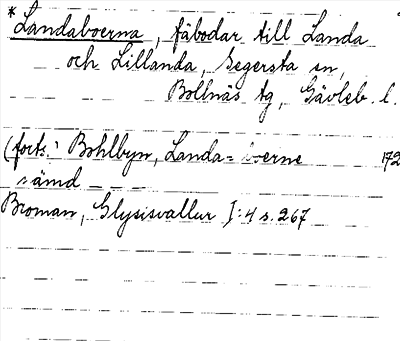 *Landaboerna, fäbodar till Landa
och Lillanda, Segersta sn,
Bollnäs tg, Gävleb. l.
(forts: Bohlbyn, Landa= boerne 172
sämd
Broman, Glysisvallur I:4 s. 267